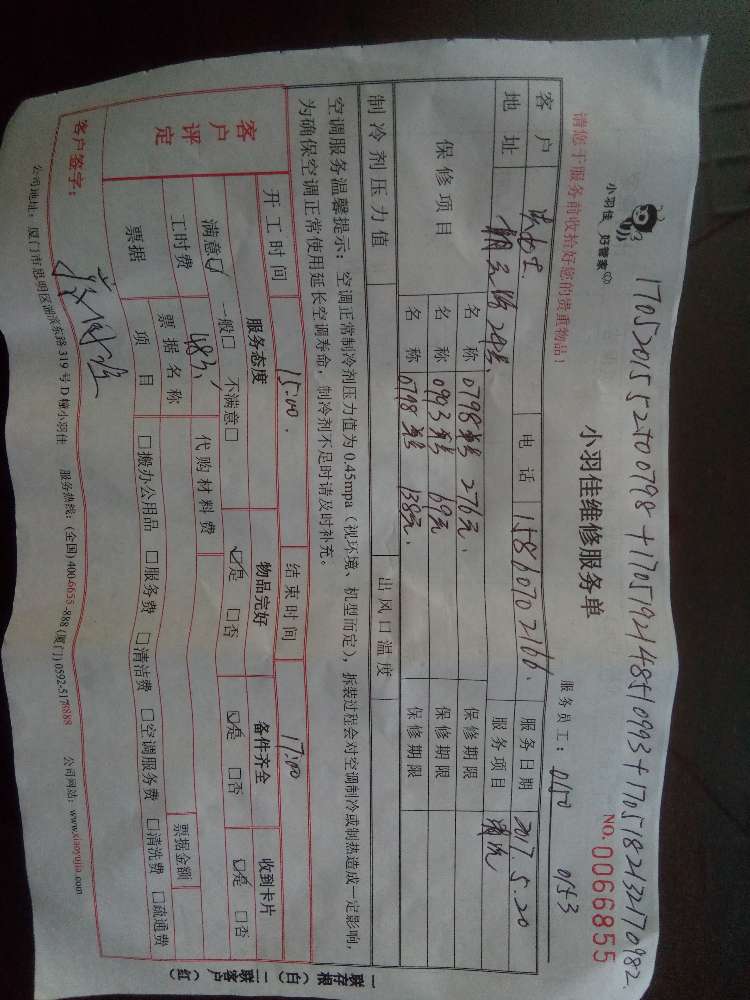 1705201552700798+1705192148510993+1705182132170982
小羽佳 好管家
小羽佳维修服务单
NO. 0066855
请您于服务前收拾好您的贵重物品!
服务员工: 0150 0153
客户 电话 15860702166. 服务日期 2017.5.20
地址 服务项目 清洗
保修项目 名称 0798 276元. 保修期限
名称 0993 69元 保修期限
名称 0798 138元. 保修期限
制冷剂压力值 出风口温度
空调服务温馨提示: 空调正常制冷剂压力值为0.45mpa(视环境、机型而定),拆装过程会对空调制冷或制热造成一定影响,
为确保空调正常使用延长空调寿命,制冷剂不足时请及时补充。
开工时间 15:00. 结束时间 17:00
客户评定 服务态度 物品完好 备件齐全 收到卡片
满意☑ 一般□ 不满意□ ☑是 □否 ☑是 □否 ☑是 □否
工时费 483元 代购材料费
票据 票据名称 票据金额
项目 □搬办公用品 □服务费 □清洁费 □空调服务费 □清洗费 □疏通费
客户签字:
公司地址: 厦门市思明区湖滨东路319号D幢小羽佳 服务热线: (全国) 400-6655-888 (厦门) 0592-5178888 公司网站: www.xiaoyujia.com
一联存根(白) 二联客户(红)